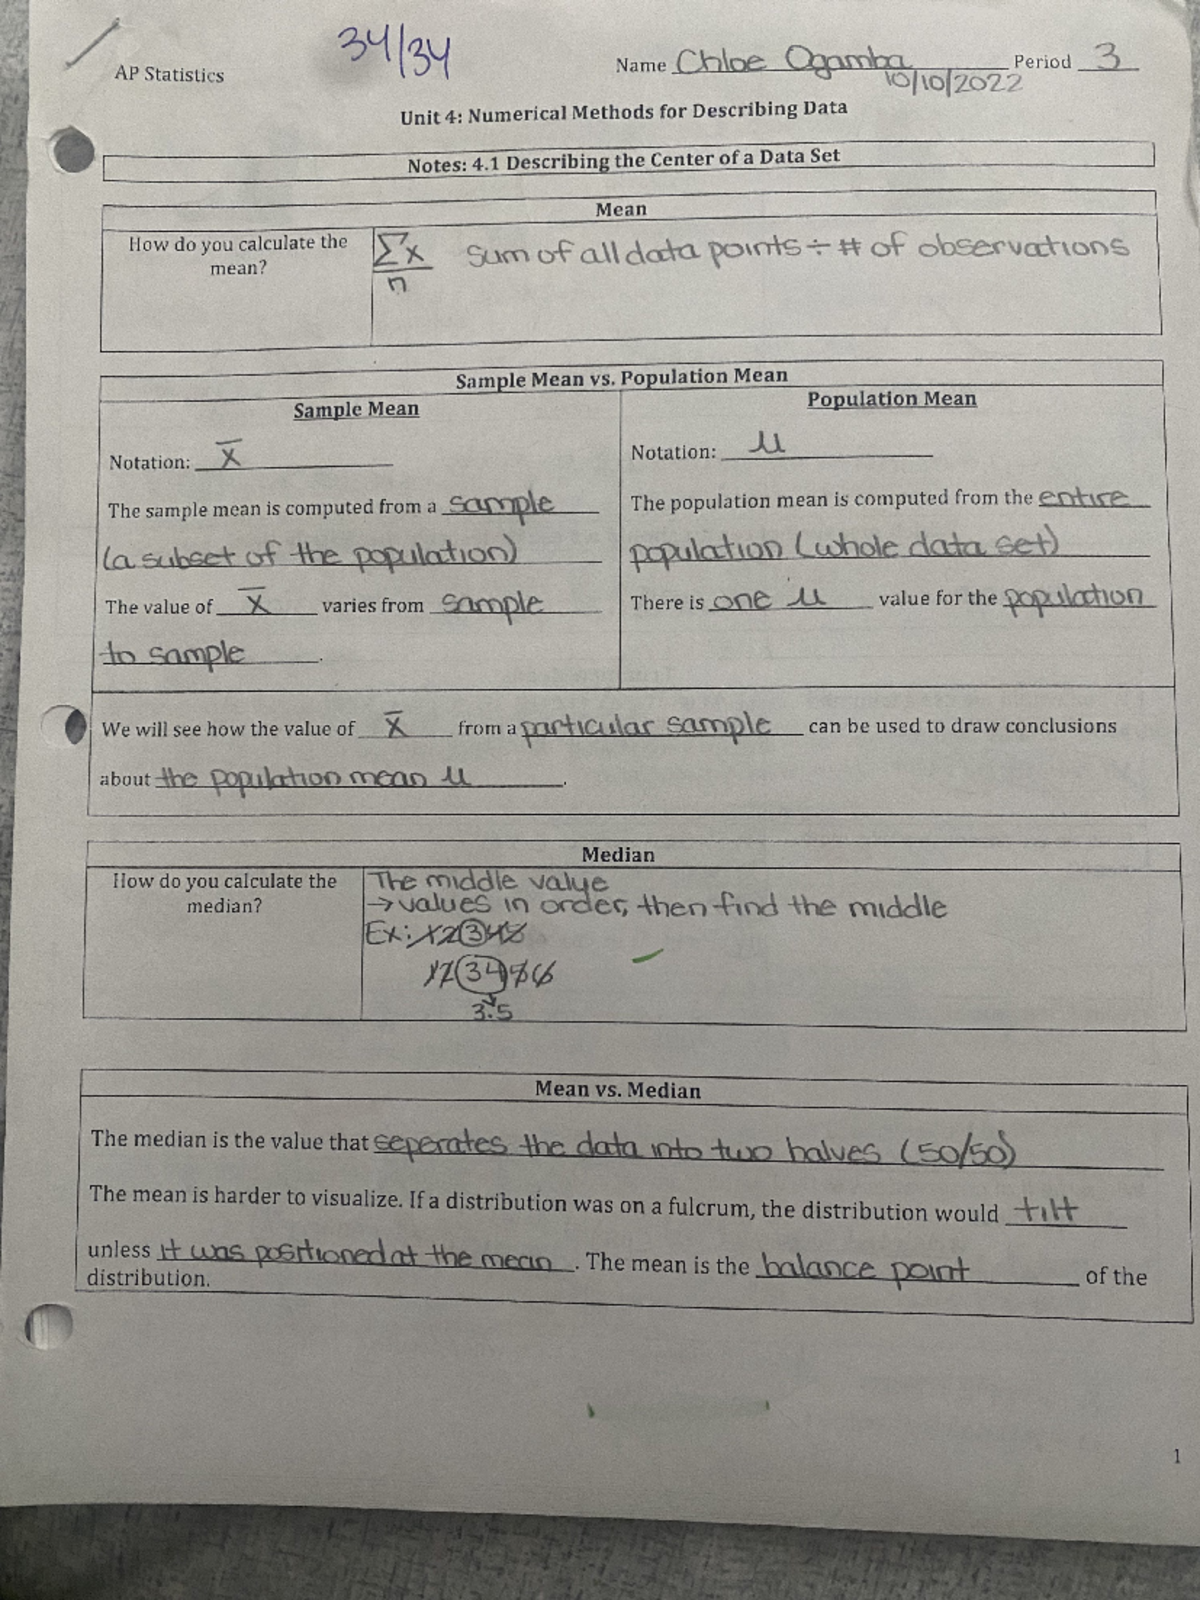 34/34
AP Statistics
Name Chloe Ogamba Period 3
10/10/2022
Unit 4: Numerical Methods for Describing Data
Notes: 4.1 Describing the Center of a Data Set
Mean
How do you calculate the
mean?
Σx
n
sum of all data points ÷ # of observations
Sample Mean vs. Population Mean
Sample Mean
Notation: x̄
The sample mean is computed from a sample
(a subset of the population)
The value of x̄ varies from sample
to sample.
Population Mean
Notation: μ
The population mean is computed from the entire
population (whole data set)
There is one μ value for the population
We will see how the value of x̄ from a particular sample can be used to draw conclusions
about the population mean μ.
Median
How do you calculate the
median?
The middle value
→values in order, then find the middle
Ex: 1 2 3 4 5
1 2 3 4 5 6
3.5
Mean vs. Median
The median is the value that seperates the data into two halves (50/50)
The mean is harder to visualize. If a distribution was on a fulcrum, the distribution would tilt
unless it was positioned at the mean. The mean is the balance point of the
distribution.
1